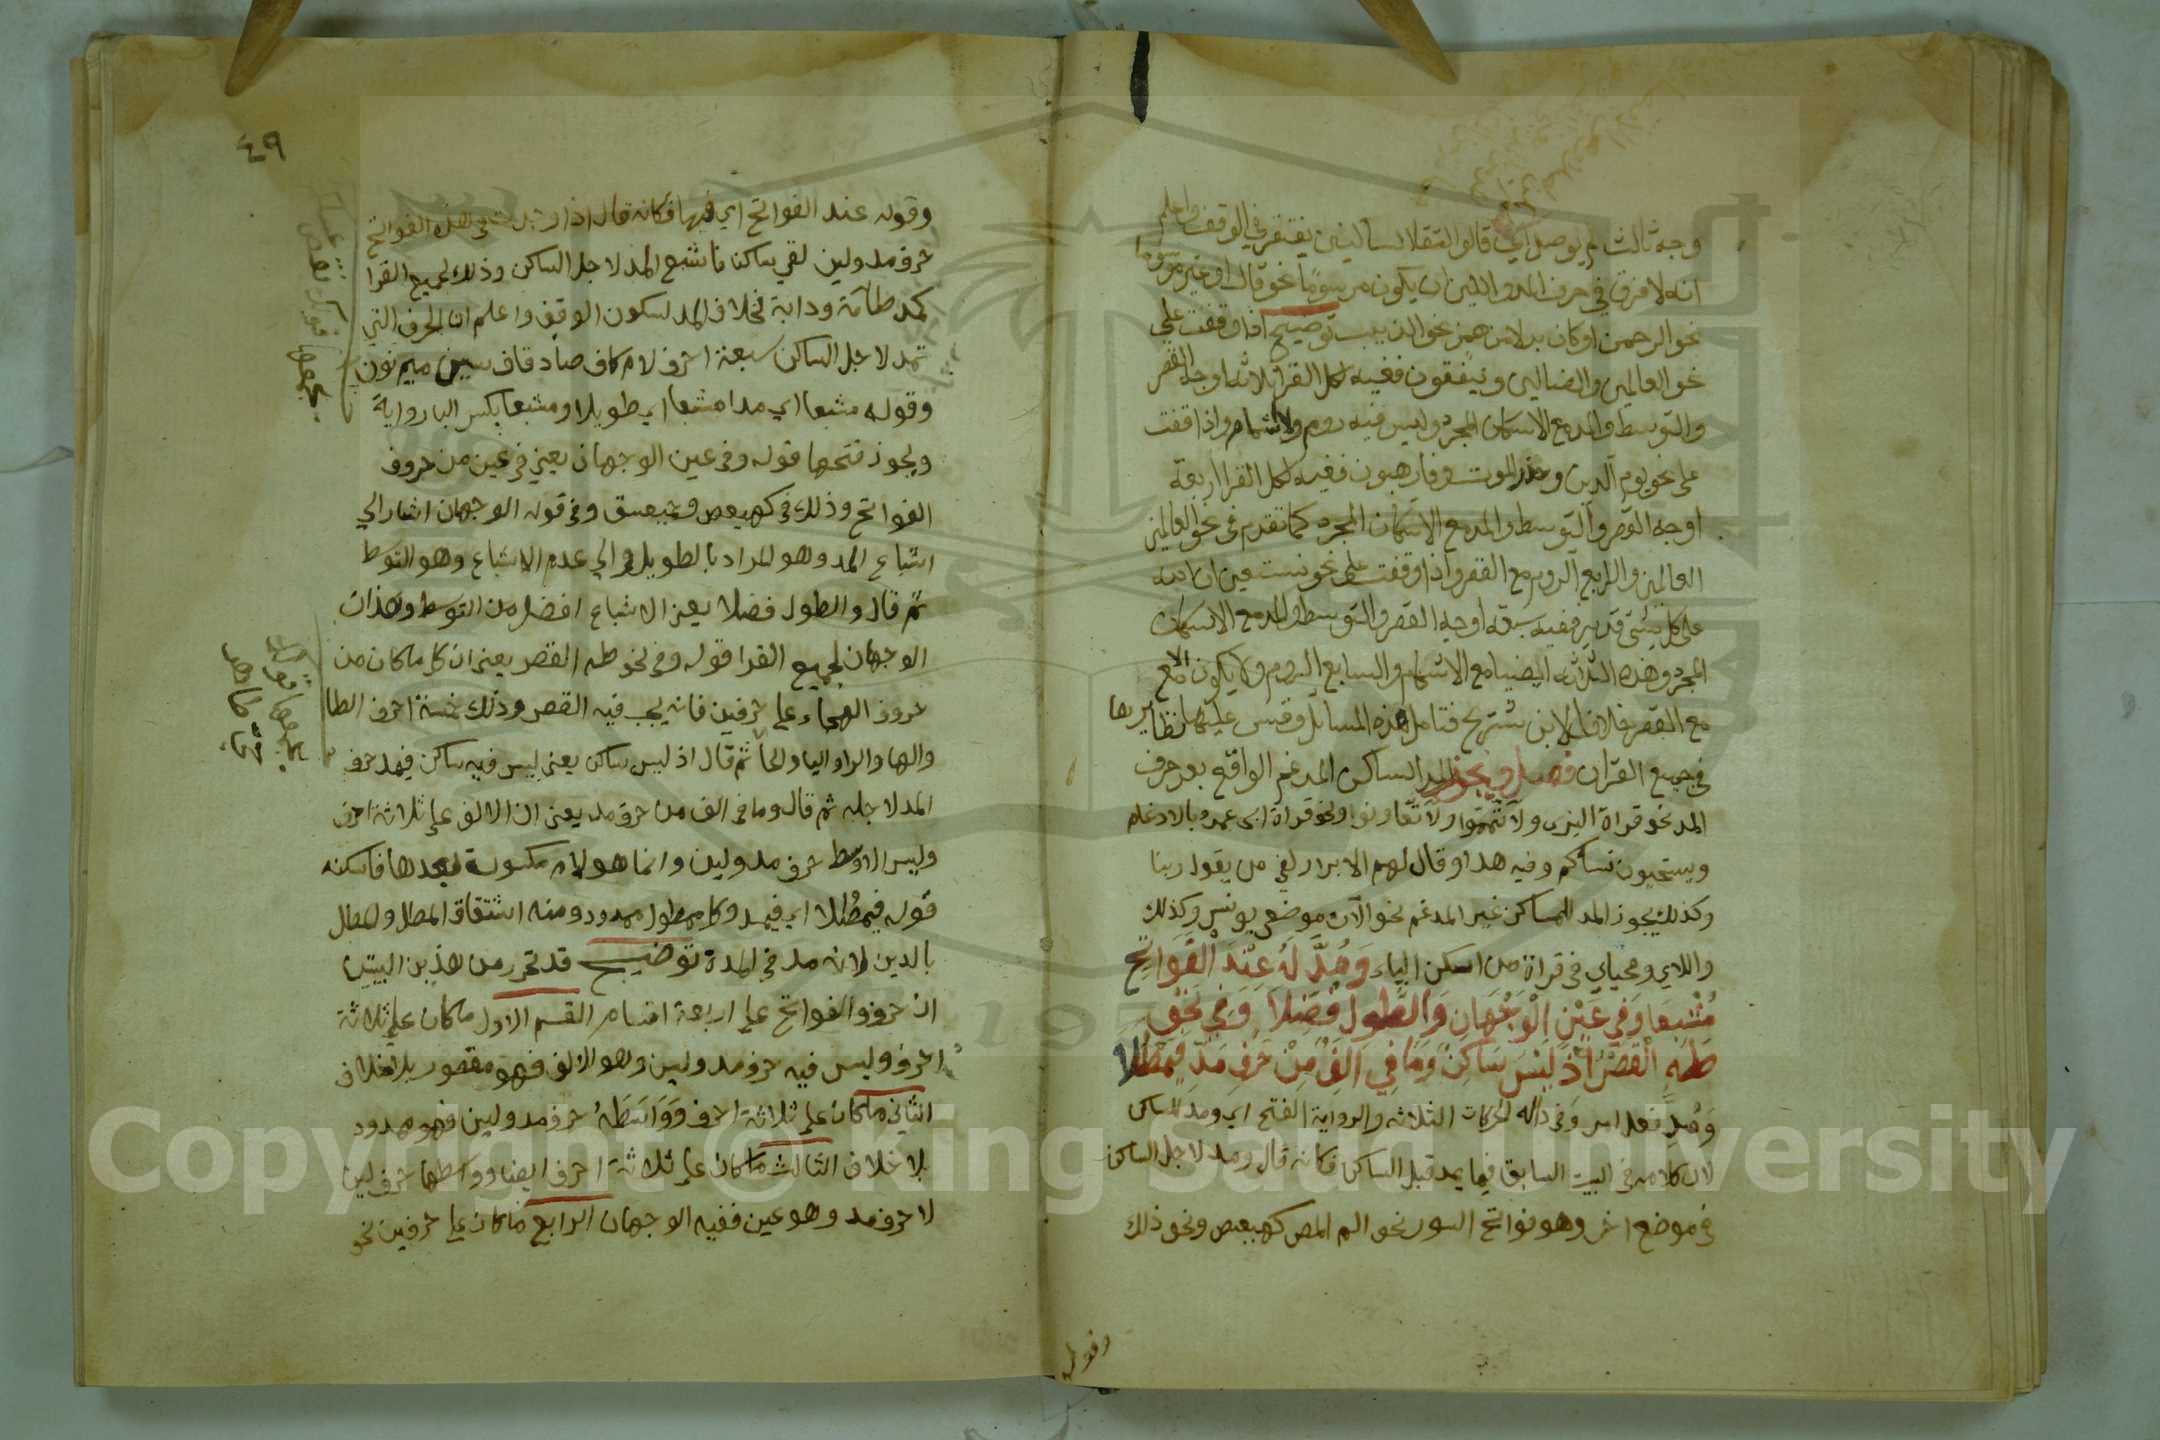 وجه ثالث لم يوصل اي قالوا التقا الساكنين يغتفر في الوقف واعلم
انه لا فرق في حرف المد واللين ان يكون مرسوما نحو قال او غير مرسوم
نحو الرحمن او كان بدلا من همز نحو الذيب توضيح اذا وقفت علي
نحو العالمين والضالين وينفقون ففيه لكل القرا ثلاثة اوجه القصر
والتوسط والمد مع الاسكان المجرد وليس فيه روم ولا اشمام واذا وقفت
على نحو يوم الدين وحذر الموت وفارهبون ففيه لكل القرا اربعة
اوجه القصر والتوسط والمد مع الاسكان المجرد كما تقدم في نحو العالمين
العالمين والرابع الروم مع القصر واذا وقفت على نحو نستعين ان الله
على كل شئ قدير ففيه سبعة اوجه القصر والتوسط والمد مع الاسكان
المجرد وهذه الثلاثة ايضا مع الاشمام والسابع الروم ولا يكون الا مع
مع القصر خلافا لابن شريح فتامل هذه المسايل وقس عليها نظايرها
في جميع القران فصل ويجوز المد الساكن المدغم الواقع بعد حرف
المد نحو قراة البزي ولا تيمموا ولا تعاونوا ونحو قراة ابى عمرو بالادغام
ويستحيون نساكم وفيه هدا وقال لهم الابرار لفي من يقول ربنا
وكذلك يجوز المد للساكن غير المدغم نحو الآن موضعي يونس وكذلك
واللاي ومحياي في قراة من اسكن الياء وَمُدَّ لَهُ عِنْدَ الْفَوَاتِحِ
مُشْبِعَا وَفِي عَيْنٍ الْوَجْهَانِ وَالطُّولُ فُضِّلَا وَفِي نَحْوِ
طَهَ الْقَصْرُ اذْ لَيْسَ سَاكِنٌ وَمَا فِي اَلِفْ مِنْ حَرْفِ مَدٍّ فَيُمْطَلَا
وَمُدَّ فعل امر وفي داله الحركات الثلاثة والرواية الفتح اي ومد للساكن
لان كلامه في البيت السابق فيما يمد قبل الساكن فكانه قال ومد لاجل الساكن
في موضع اخر وهو فواتح السور نحو الم المص كهيعص ونحو ذلك
وقوله
٤٩
وقوله عند الفواتح اي فيها فكانه قال اذا وجد في هذه الفواتح
حرف مد ولين لقي ساكنا فاشبع المد لاجل الساكن وذلك لجميع القرا
كمد طآمة ودابة بخلاف المد لسكون الوقف واعلم ان الحرف التي
تمد لاجل الساكن سبعة احرف لام كاف صاد قاف سين ميم نون
وقوله مشبعا اي مدا مشبعا اي طويلا ومشبعا بكسر البا رواية
ويجوز فتحها قوله وفي عين الوجهان يعني في عين من حروف
الفواتح وذلك في كهيعص وحمعسق وفي قوله الوجهان اشار الي
اشباع المد وهو المراد بالطويل والي عدم الاشباع وهو التوسط
ثم قال والطول فضلا يعني الاشباع افضل من التوسط وهذان
الوجهان لجميع القرا قوله وفي نحو طه القصر يعني ان كل ما كان من
حروف الهجاء على حرفين فانه يجب فيه القصر وذلك خمسة احرف الطا
والها والرا واليا والحا ثم قال اذ ليس ساكن يعني ليس فيه ساكن فيمد حرف
المد لاجله ثم قال وما في الف من حرف مد يعني ان الالف على ثلاثة احرف
وليس الاوسط حرف مد ولين وانما هو لام مكسورة بعدها فا سكنه
قوله فيمطلا اي فيمد وكل ممطول ممدود ومنه اشتقاق المطل والمطال
بالدين لانه مد في المدة توضيح قد تحرر من هذين البيتين
ان حروف الفواتح على اربعة اقسام القسم الاول ما كان على ثلاثة
احرف وليس فيه حرف مد ولين وهو الالف فهو مقصور بلا خلاف
الثاني ما كان على ثلاثة احرف وَوَاسَطَهُ حرف مد ولين فهو ممدود
بلا خلاف الثالث ما كان على ثلاثة احرف ايضا ووسطها حرف لين
لا حرف مد وهو عين ففيه الوجهان الرابع ما كان على حرفين نحو
Copyright © King Saud University